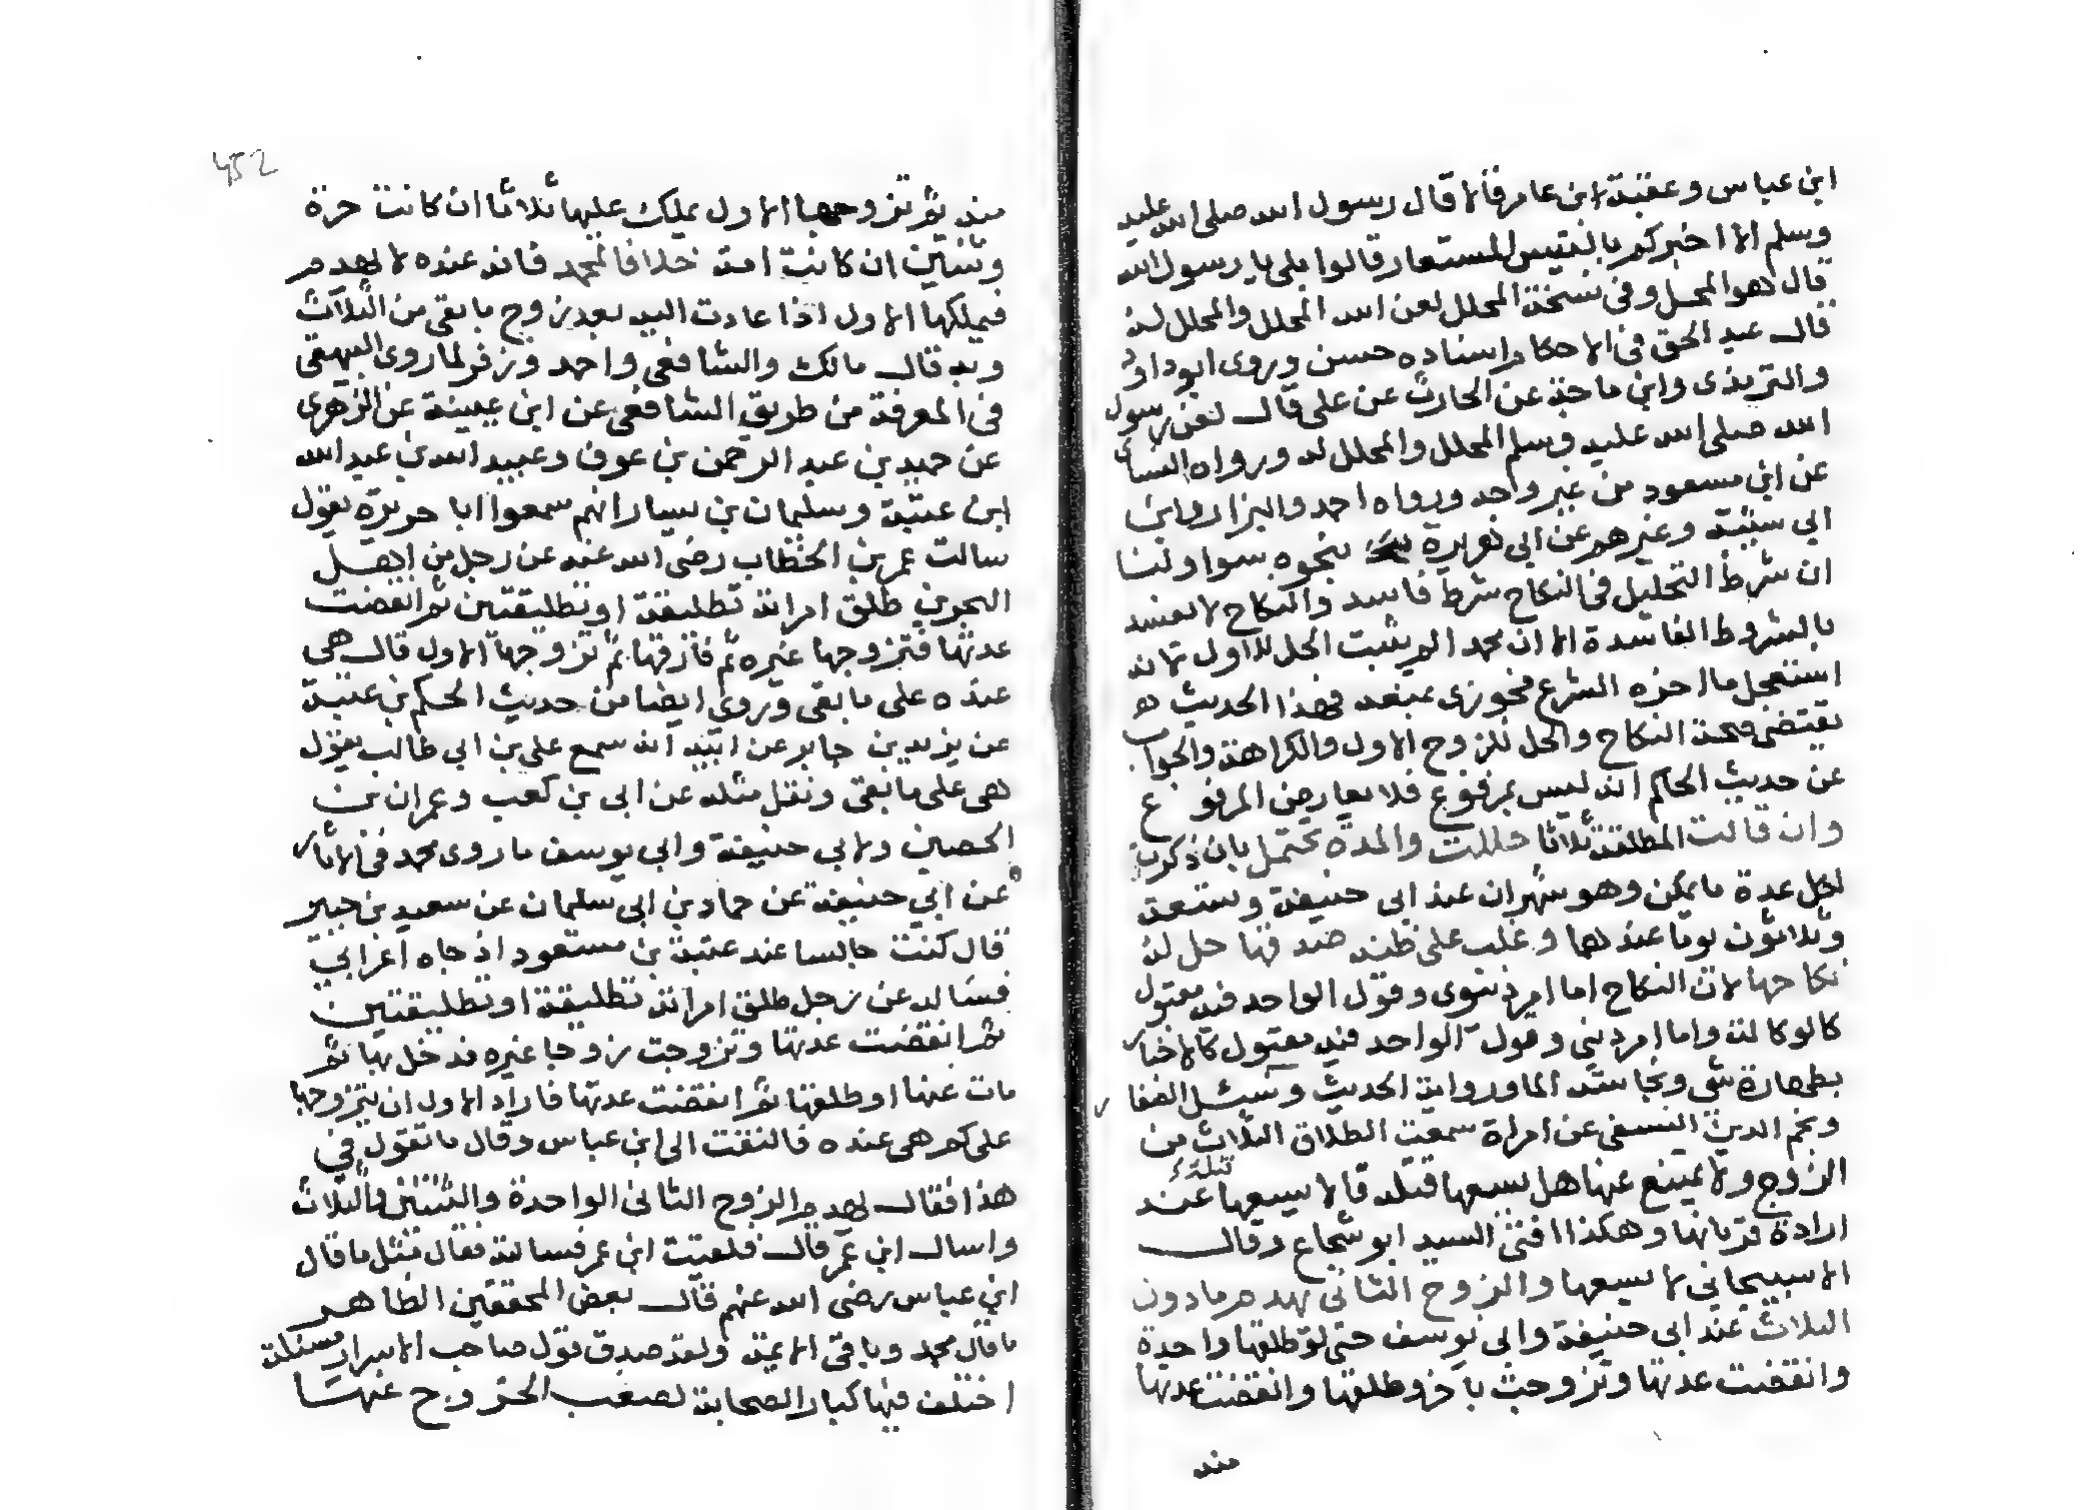 ابن عباس وعقبة ابن عامر قالا قال رسول الله صلى الله عليه
وسلم الا اخبركم بالتيس المستعار قالوا بلى يا رسول الله
قال هو المحل وفى نسخة المحلل لعن الله المحلل والمحلل له
قال عبد الحق فى الاحكام واسناده حسن وروى ابو داود
والترمذى وابن ماجة عن الحارث عن على قال لعن رسول
الله صلى الله عليه وسلم المحلل والمحلل له ورواه النسأى
عن ابن مسعود من غير واحد ورواه احمد والبزار وابن
ابي شيبة وغيرهم عن ابى هريرة بنحوه سوا ولنا
ان شرط التحليل فى النكاح شرط فاسد والنكاح لا يفسد
بالشروط الفاسدة الا ان محمدا لم يثبت الحل للاول لانه
استعجل ما اخره الشرع فجوزى بمنعه فهذا الحديث
يقتضى صحة النكاح والحل للزوج الاول والكراهة والجواب
عن حديث الحاكم انه ليس بمرفوع فلا يعارض المرفوع
وان قالت المطلقة ثلاثا حللت والمدة تحتمل بان ذكرت
لكل عدة ما يمكن وهو شهران عند ابى حنيفة وتسعة
وثلاثون يوما عندهما وغلب على ظنه صدقها حل له
نكاحها لان النكاح اما امر دنيوى وقول الواحد فيه مقبول
كالوكالة واما امر ديني وقول الواحد فيه مقبول كالاخبار
بطهارة شى ونجاسته الما ورواية الحديث وسئل الصفا
ونجم الدين النسفى عن امراة سمعت الطلاق الثلاث من
الزوج ولا يمتنع عنها هل يسعها قتله قالا يسعها قتله عند
ارادة قربانها وهكذا افتى السيد ابو شجاع وقال
الاسبيجانى لا يسعها والزوج الثانى يهدم ما دون
الثلاث عند ابى حنيفة وابى يوسف حتى لو طلقها واحدة
وانقضت عدتها وتزوجت باخر وطلقها وانقضت عدتها
منه
452
منه ثم تزوجها الاول يملك عليها ثلاثا ان كانت حرة
وثنتين ان كانت امة خلافا لمحمد فانه عنده لا يهدم
فيملكها الاول اذا عادت اليه بعد زوج ما بقى من الثلاث
وبه قال مالك والشافعى واحمد وزفر لما روى البيهقى
فى المعرفة من طريق الشافعى عن ابن عيينة عن الزهرى
عن حميد بن عبد الرحمن بن عوف وعبيد الله بن عبد الله
ابن عتبة وسليمان بن يسار انهم سمعوا ابا هريرة يقول
سالت عمر بن الخطاب رضى الله عنه عن رجل من اهل
البحرين طلق امراته تطليقة او تطليقتين ثم انقضت
عدتها فتزوجها غيره ثم فارقها ثم تزوجها الاول قال هى
عنده على ما بقى وروى ايضا من حديث الحكم بن عتبة
عن يزيد بن جابر عن ابيه انه سمع على بن ابي طالب يقول
هى على ما بقى ونقل مثله عن ابى بن كعب وعمران بن
الحصين ولابي حنيفة وابي يوسف ما روى محمد فى الاثار
عن ابي حنيفة عن حماد بن ابى سليمان عن سعيد بن جبير
قال كنت جالسا عند عتبة بن مسعود اذ جاه اعرابي
فساله عن رجل طلق امراته تطليقة او تطليقتين
ثم انقضت عدتها وتزوجت زوجا غيره فدخل بها ثم
مات عنها او طلقها ثم انقضت عدتها فاراد الاول ان يتزوجها
على كم هى عنده فالتفت الى ابن عباس وقال ما تقول في
هذا فقال يهدم الزوج الثانى الواحدة والثنتين والثلاث
واسال ابن عمر قال فلقيت ابن عمر فسالته فقال مثل ما قال
ابن عباس رضى الله عنهم قال بعض المحققين الظاهر
ما قال محمد وباقى الايمة ولقد صدق قول صاحب الاسرار مسئلة
اختلف فيها كبار الصحابة لصعب الخروج عنها